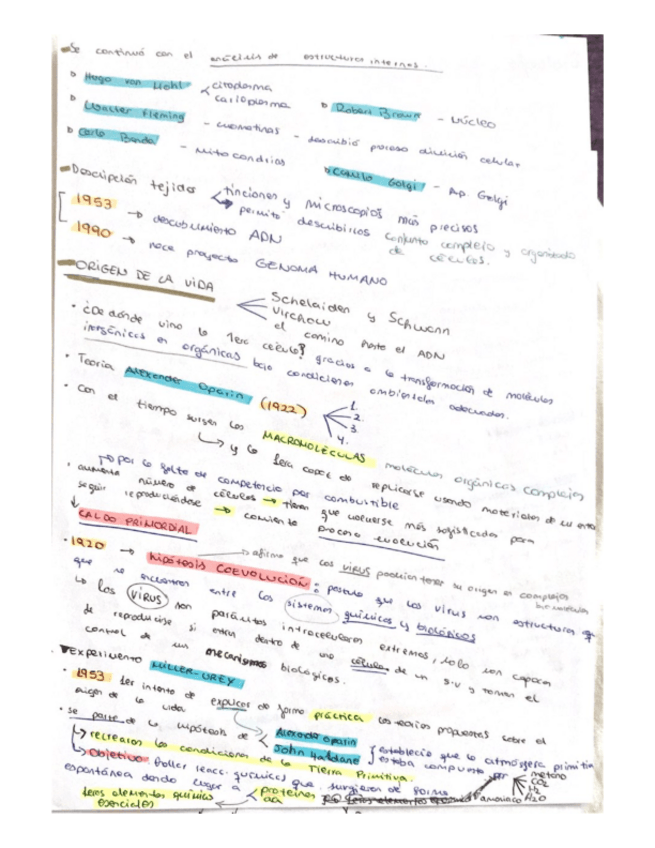 Se continuó con el análisis de estructuras internas.
Hugo von Mohl citodorma carioplorma
Robert Brown - Núcleo
Walter Fleming - cromatinas - describió proceso división celular
Carlo Benda - Mitocondrias
Camilo Golgi - Ap. Golgi
Descripción tejidos tinciones y microscopios más precisos
permitió describirlos conjunto complejo y organizado de células.
1953 → descubrimiento ADN
1990 → nace proyecto GENOMA HUMANO
ORIGEN DE LA VIDA
Schelaiden y Schwann
Virchow
el camino hasta el ADN
· ¿De dónde vino la 1era célula? gracias a la transformación de moléculas
inorgánicas en orgánicas bajo condiciones ambientales adecuadas.
· Teoría Alexander Oparin (1922)
1.
2.
3.
4.
· Con el tiempo surgen las MACROMOLÉCULAS moléculas orgánicas complejas
y la 1era capaz de replicarse usando materiales de su
por la falta de competencia por combustible
· aumenta número de células → tienen que volverse más sofisticadas para
seguir reproduciéndose → comienza proceso evolución
CALDO PRIMORDIAL
· 1920 → hipótesis COEVOLUCIÓN: afirma que los virus podrían tener su origen en complejos
postula que los virus son estructuras
que se encuentran entre los sistemas químicos y biológicos
los VIRUS son parásitos intracelulares extremos, solo son capaces
de reproducirse si están dentro de una célula de un s.v y toman el
control de sus mecanismos biológicos.
Experimento MILLER-UREY
· 1953 1er intento de explicar de forma práctica las teorías propuestas sobre el
origen de la vida
· se parte de la hipótesis de Alexander Oparin
John Haldane
estableció que la atmósfera primitiva
estaba compuesta por metano
CO2
H2
H2O
amoniaco
recrearon las condiciones de la Tierra Primitiva.
Objetivo: hallar reacc. químicas que surgieron de forma
espontánea dando lugar a proteínas
aa
1eros elementos químicos
esenciales